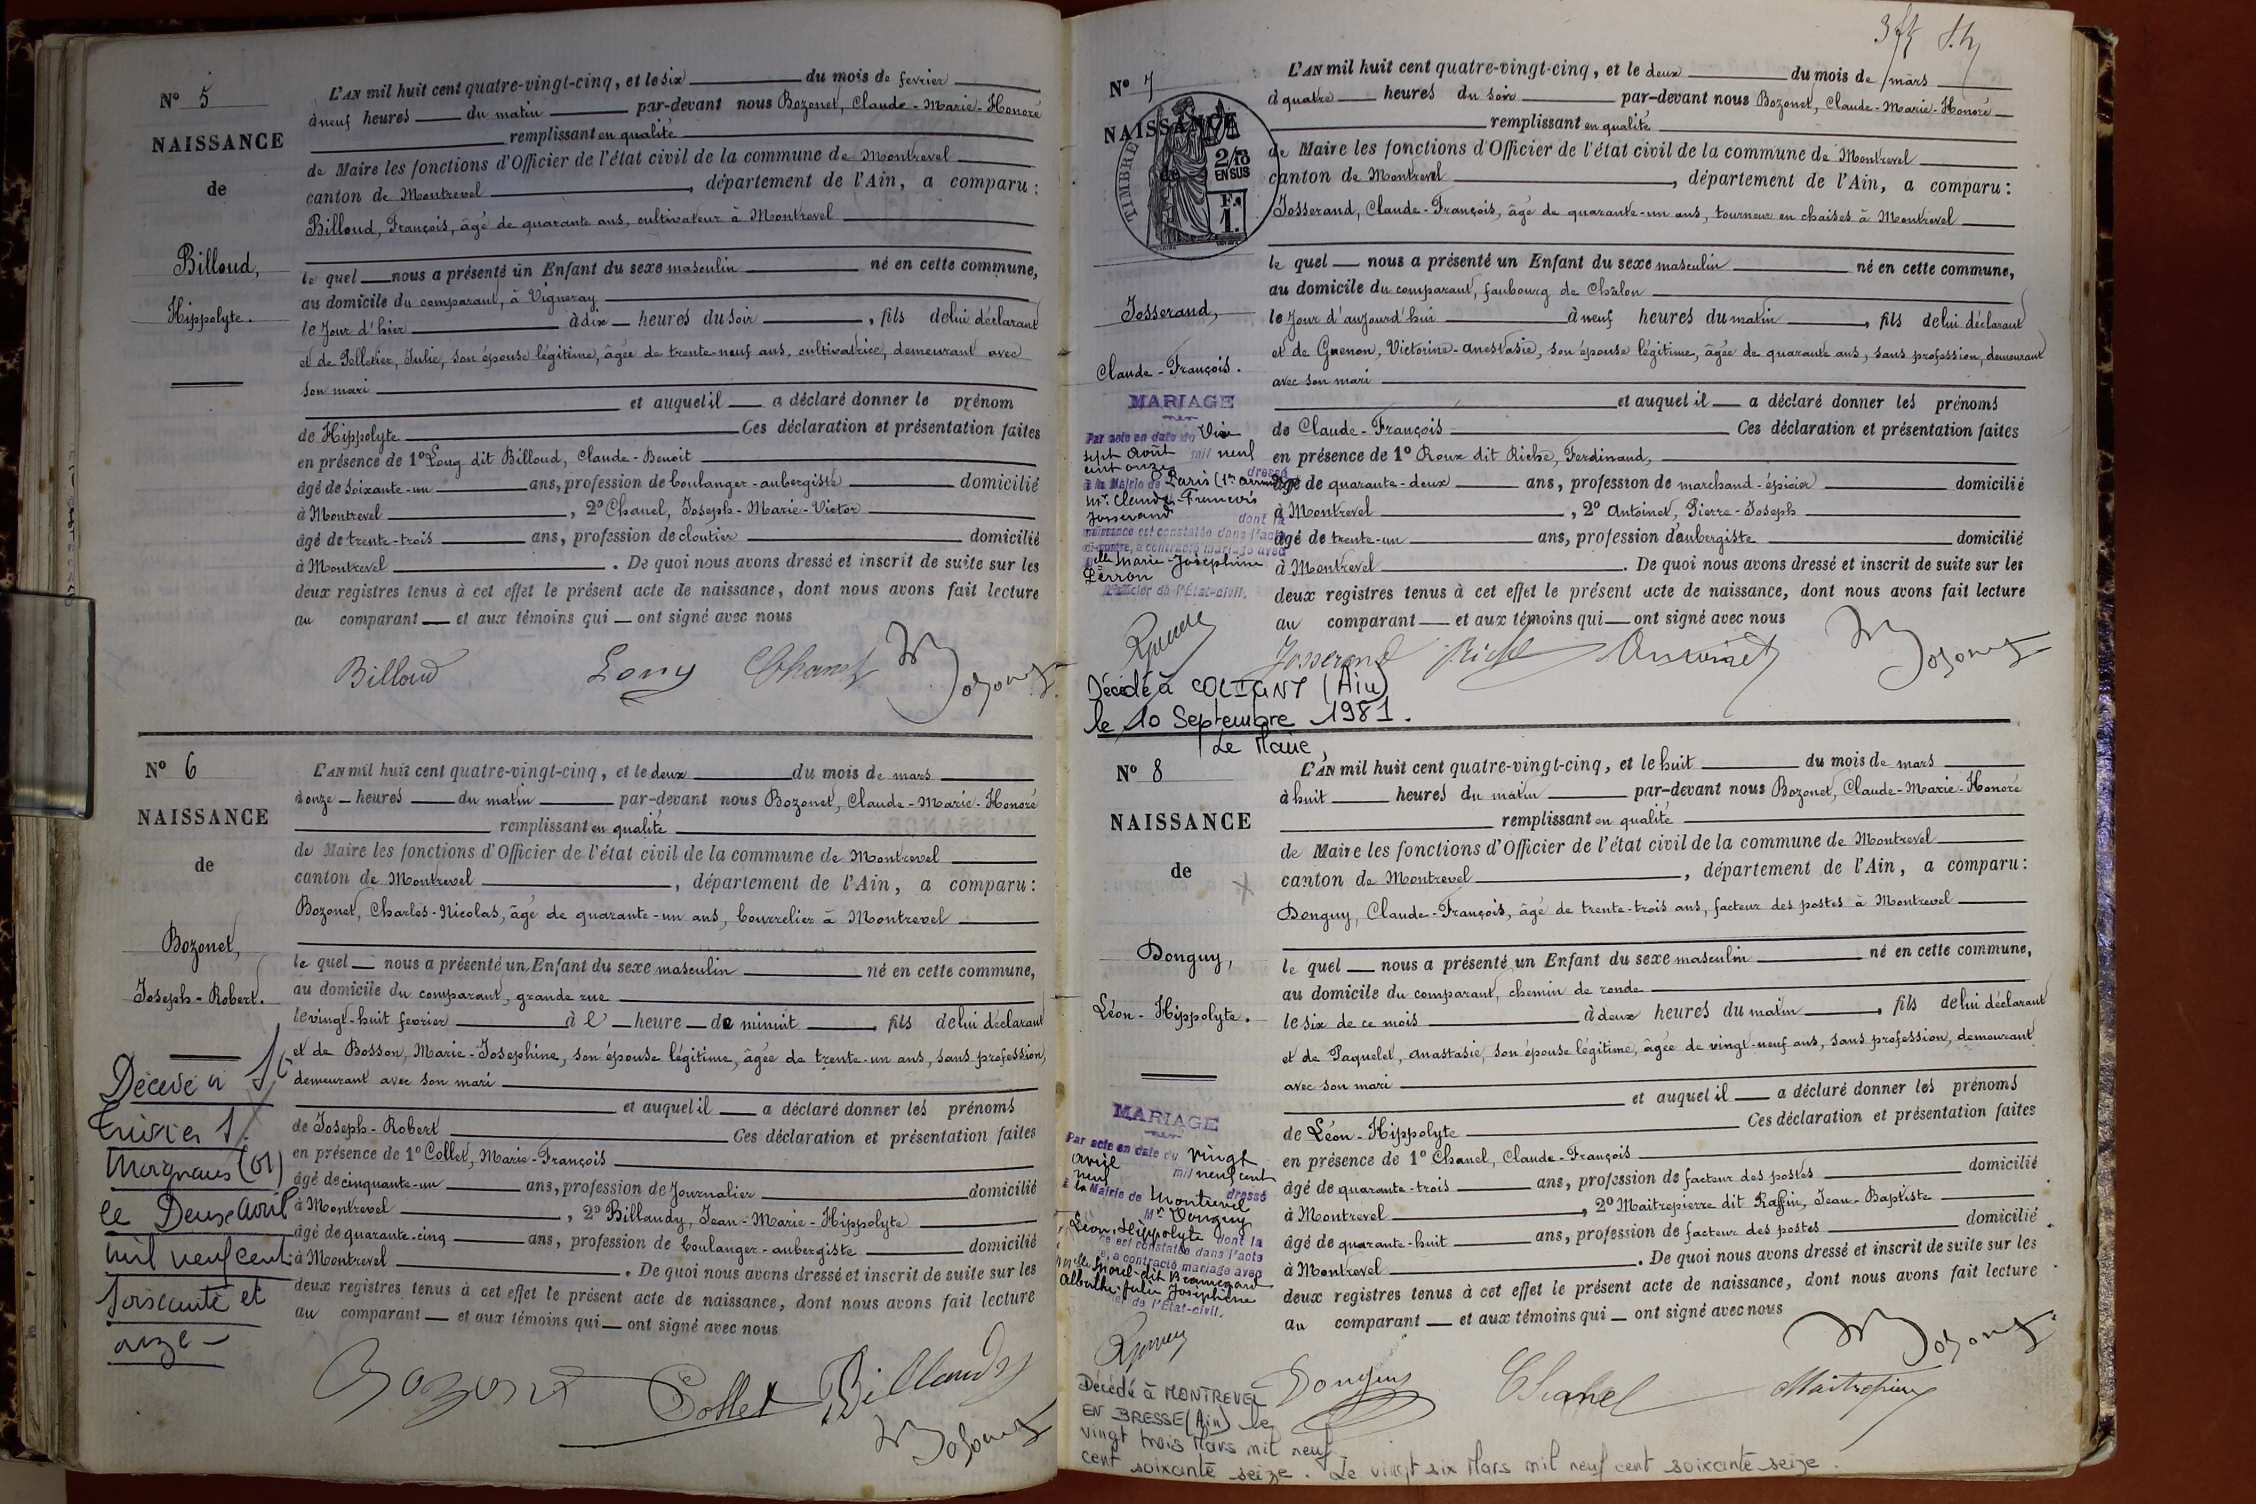 N° 5
NAISSANCE
de
Billoud,
Hippolyte.
L'AN mil huit cent quatre-vingt-cinq, et le six du mois de fevrier
à neuf heures du matin par-devant nous Bozonet, Claude-Marie-Honoré
remplissant en qualité
de Maire les fonctions d'Officier de l'état civil de la commune de Montrevel
canton de Montrevel, département de l'Ain, a comparu:
Billoud, François, âgé de quarante ans, cultivateur à Montrevel
le quel nous a présenté un Enfant du sexe masculin né en cette commune,
au domicile du comparant, à Vigneray
le Jour d'hier à dix heures du soir, fils de lui déclarant
et de Pelletier, Julie, son épouse légitime, âgée de trente-neuf ans, cultivatrice, demeurant avec
son mari
et auquel il a déclaré donner le prénom
de Hippolyte Ces déclaration et présentation faites
en présence de 1° Loug dit Billoud, Claude-Benoit
âgé de soixante-un ans, profession de boulanger-aubergiste domicilié
à Montrevel, 2° Chanel, Joseph-Marie-Victor
âgé de trente-trois ans, profession de cloutier domicilié
à Montrevel. De quoi nous avons dressé et inscrit de suite sur les
deux registres tenus à cet effet le présent acte de naissance, dont nous avons fait lecture
au comparant et aux témoins qui ont signé avec nous
Billoud Chanel Bozonet
N° 6
NAISSANCE
de
Bozonet,
Joseph-Robert.
L'AN mil huit cent quatre-vingt-cinq, et le deux du mois de mars
à onze heures du matin par-devant nous Bozonet, Claude-Marie-Honoré
remplissant en qualité
de Maire les fonctions d'Officier de l'état civil de la commune de Montrevel
canton de Montrevel, département de l'Ain, a comparu:
Bozonet, Charles-Nicolas, âgé de quarante-un ans, bourrelier à Montrevel
le quel nous a présenté un Enfant du sexe masculin né en cette commune,
au domicile du comparant, grande rue
le vingt-huit fevrier à l' heure de minuit, fils de lui déclarant
et de Bosson, Marie-Josephine, son épouse légitime, âgée de trente-un ans, sans profession,
demeurant avec son mari
et auquel il a déclaré donner les prénoms
de Joseph-Robert Ces déclaration et présentation faites
en présence de 1° Collet, Marie-François
âgé de cinquante-un ans, profession de Journalier domicilié
à Montrevel, 2° Billaudy, Jean-Marie-Hippolyte
âgé de quarante-cinq ans, profession de boulanger-aubergiste domicilié
à Montrevel. De quoi nous avons dressé et inscrit de suite sur les
deux registres tenus à cet effet le présent acte de naissance, dont nous avons fait lecture
au comparant et aux témoins qui ont signé avec nous
Décédé à St
Trivier s/
Moignans (01)
le Deux Avril
mil neuf cent
soixante et
onze
Bozonet Collet Billaudy
Bozonet
N° 7
NAISSANCE
de
TIMBRE
2/10
EN SUS
F.
1.
Josserand,
Claude-François.
L'AN mil huit cent quatre-vingt-cinq, et le deux du mois de mars
à quatre heures du soir par-devant nous Bozonet, Claude-Marie-Honoré
remplissant en qualité
de Maire les fonctions d'Officier de l'état civil de la commune de Montrevel
canton de Montrevel, département de l'Ain, a comparu:
Josserand, Claude-François, âgé de quarante-un ans, tourneur en chaises à Montrevel
le quel nous a présenté un Enfant du sexe masculin né en cette commune,
au domicile du comparant, faubourg de Châlon
le Jour d'aujourd'hui à neuf heures du matin, fils de lui déclarant
et de Guenon, Victorine-Anestasie, son épouse légitime, âgée de quarante ans, sans profession, demeurant
avec son mari
et auquel il a déclaré donner les prénoms
de Claude-François Ces déclaration et présentation faites
en présence de 1° Roux dit Riche, Ferdinand,
âgé de quarante-deux ans, profession de marchand-épicier domicilié
à Montrevel, 2° Antoinet, Pierre-Joseph
âgé de trente-un ans, profession d'aubergiste domicilié
à Montrevel. De quoi nous avons dressé et inscrit de suite sur les
deux registres tenus à cet effet le présent acte de naissance, dont nous avons fait lecture
au comparant et aux témoins qui ont signé avec nous
MARIAGE
Par acte en date du
sept Août mil neuf
cent onze dressé
à la Mairie de Paris (1er arrondt)
Mr Claude-François
Josserand dont la
naissance est constatée dans l'acte
ci-contre, a contracté mariage avec
Delle Marie-Joséphine
Perron
L'Officier de l'État-civil.
Josserand Riche Antoinet Bozonet
Décédé à COLIGNY (Ain)
le 10 Septembre 1981.
Le Maire,
N° 8
NAISSANCE
de
Donguy,
Léon-Hippolyte.
L'AN mil huit cent quatre-vingt-cinq, et le huit du mois de mars
à huit heures du matin par-devant nous Bozonet, Claude-Marie-Honoré
remplissant en qualité
de Maire les fonctions d'Officier de l'état civil de la commune de Montrevel
canton de Montrevel, département de l'Ain, a comparu:
Donguy, Claude-François, âgé de trente-trois ans, facteur des postes à Montrevel
le quel nous a présenté un Enfant du sexe masculin né en cette commune,
au domicile du comparant, chemin de ronde
le six de ce mois à deux heures du matin, fils de lui déclarant
et de Paquelet, Anastasie, son épouse légitime, âgée de vingt-neuf ans, sans profession, demeurant
avec son mari
et auquel il a déclaré donner les prénoms
de Léon-Hippolyte Ces déclaration et présentation faites
en présence de 1° Chanel, Claude-François
âgé de quarante-trois ans, profession de facteur des postes domicilié
à Montrevel, 2° Maitrepierre dit Raffin, Jean-Baptiste
âgé de quarante-huit ans, profession de facteur des postes domicilié
à Montrevel. De quoi nous avons dressé et inscrit de suite sur les
deux registres tenus à cet effet le présent acte de naissance, dont nous avons fait lecture
au comparant et aux témoins qui ont signé avec nous
MARIAGE
Par acte en date du vingt
avril mil neuf cent
neuf dressé
à la Mairie de Montrevel
Mr Donguy
Léon-Hippolyte dont la
est constatée dans l'acte
a contracté mariage avec
Melle Morel dit Beauregard
Julie Joséphine
de l'État-civil.
Donguy Chanel Maitrepierre Bozonet
Décédé à MONTREVEL
EN BRESSE (Ain) le
vingt trois Mars mil neuf
cent soixante seize. Le vingt six Mars mil neuf cent soixante seize.